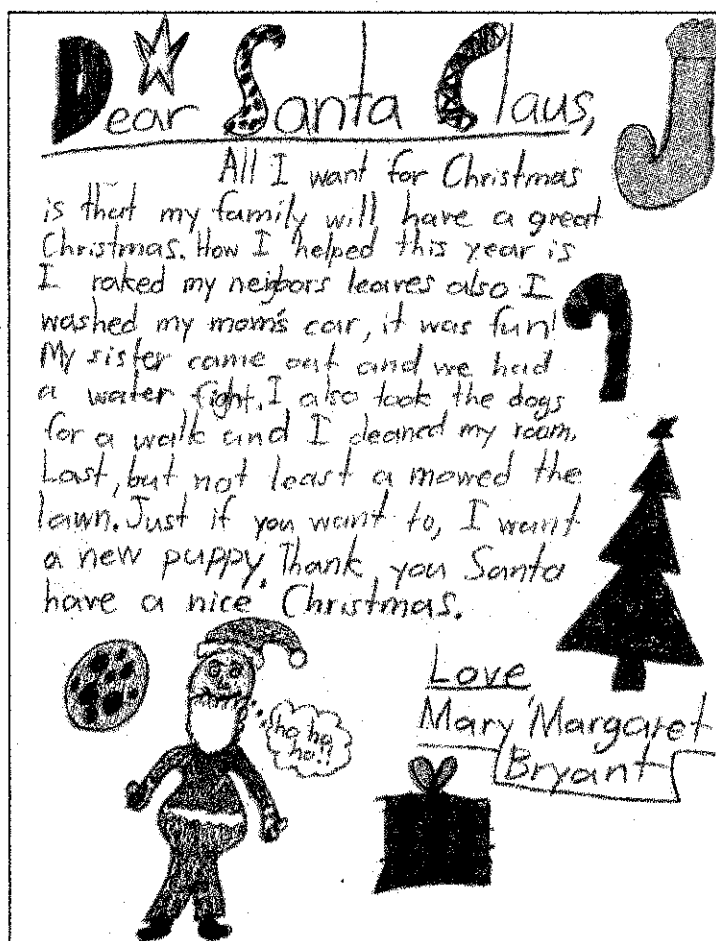 Dear Santa Claus,
All I want for Christmas
is that my family will have a great
Christmas. How I helped this year is
I raked my neigbors leaves also I
washed my mom's car, it was fun!
My sister came out and we had
a water fight. I also took the dogs
for a walk and I cleaned my room.
Last, but not least a mowed the
lawn. Just if you want to, I want
a new puppy. Thank you Santa
have a nice Christmas.
Love
Mary Margaret
Bryant
ho ho
ho!!